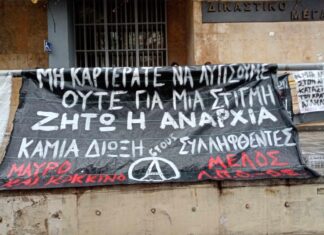 ΔΙΚΑΣΤΙΚΟ
ΜΕΓΑ
ΜΗ ΚΑΡΤΕΡΑΤΕ ΝΑ ΛΥΓΙΣΟΥΜΕ
ΟΥΤΕ ΓΙΑ ΜΙΑ ΣΤΙΓΜΗ
ΖΗΤΩ Η ΑΝΑΡΧΙΑ
ΚΑΜΙΑ ΔΙΩΞΗ ΣΤΟΥΣ ΣΥΛΛΗΦΘΕΝΤΕΣ
ΜΑΥΡΟ ΜΕΛΟΣ
ΚΑΙ ΚΟΚΚΙΝΟ